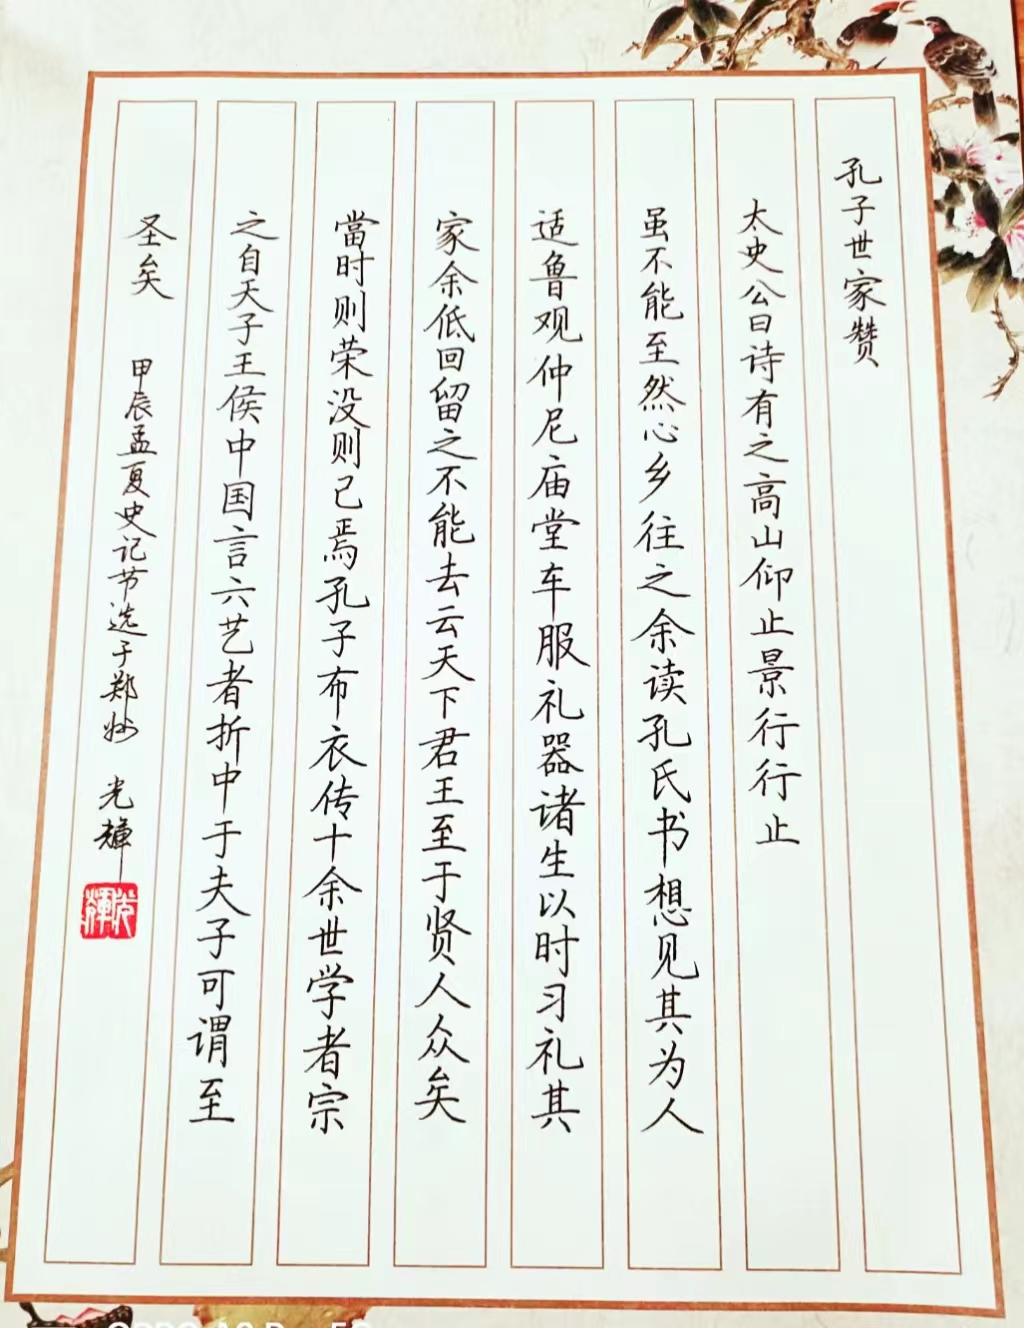 孔子世家赞
太史公曰诗有之高山仰止景行行止
虽不能至然心乡往之余读孔氏书想见其为人
适鲁观仲尼庙堂车服礼器诸生以时习礼其
家余低回留之不能去云天下君王至于贤人众矣
當时则荣没则已焉孔子布衣传十余世学者宗
之自天子王侯中国言六艺者折中于夫子可谓至
圣矣 甲辰孟夏史记节选于郑州 光輝
光輝